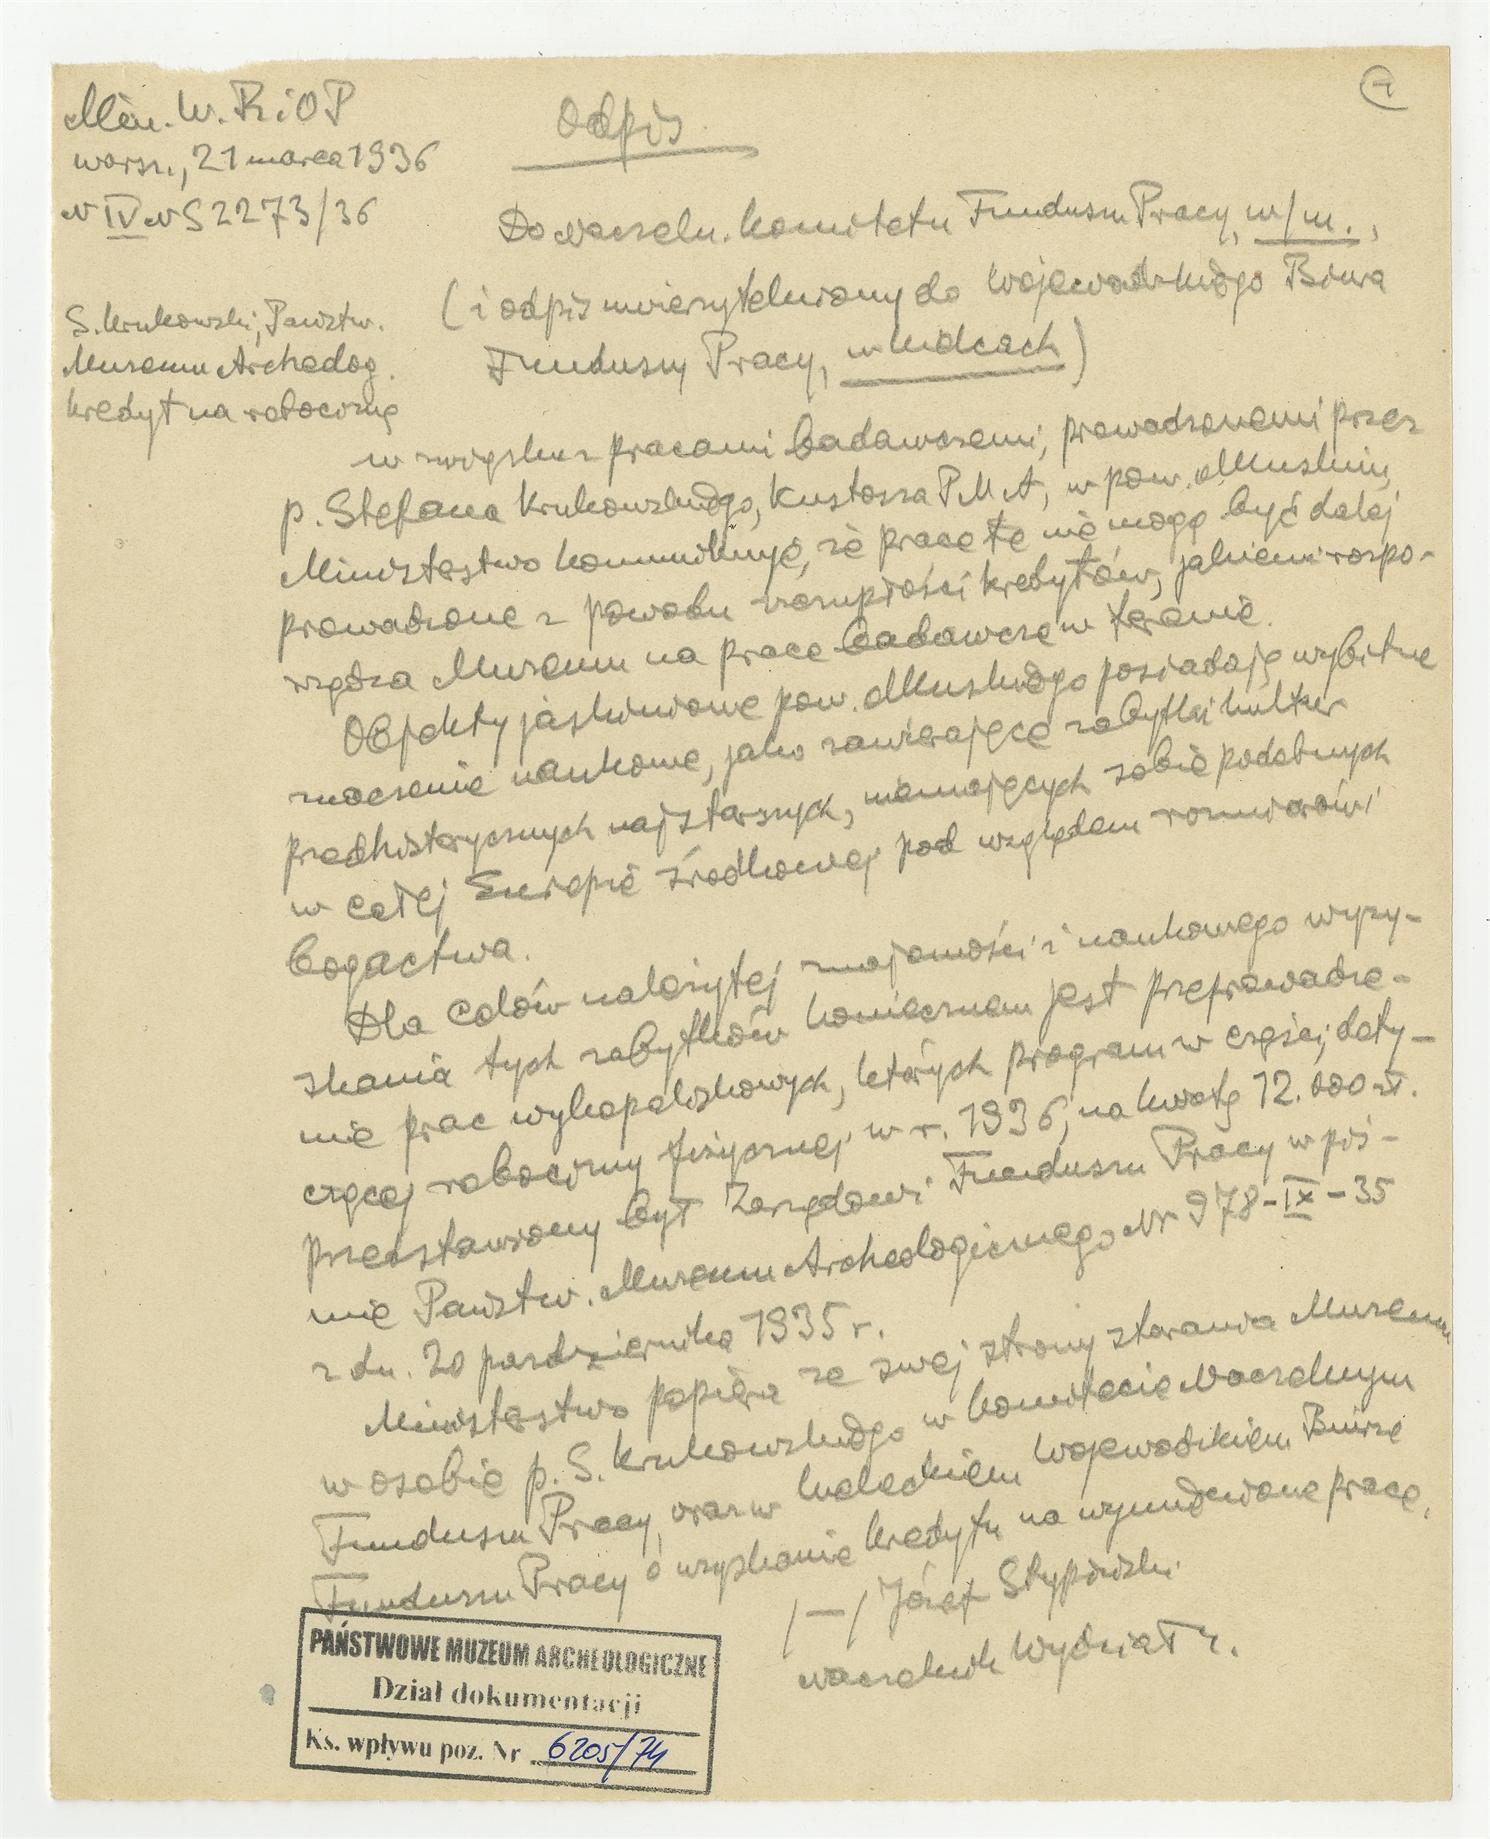 1
Min. W. R. i O P
Warsz., 21 marca 1936
N IV NS 2273/36
Odpis
Do Naczeln. Komitetu Funduszu Pracy, w/m.,
(i odpis uwierzytelniony do Wojewódzkiego Biura
Funduszu Pracy, w Kielcach)
S. Krukowski, Państw.
Muzeum Archeolog.
kredyt na robociznę
W związku z pracami badawczemi, prowadzonemi przez
p. Stefana Krukowskiego, Kustosza PMA, w pow. olkuskim,
Ministerstwo komunikuje, że prace te nie mogą być dalej
prowadzone z powodu szczupłości kredytów, jakiemi rozpo-
rządza Muzeum na prace badawcze w terenie.
Objekty jaskiniowe pow. olkuskiego posiadają wybitne
znaczenie naukowe, jako zawierające zabytki kultur
predhistorycznych najstarszych, niemających sobie podobnych
w całej Europie Środkowej pod względem rozmiarów i
bogactwa.
Dla celów należytej znajomości i naukowego wyzy-
skania tych zabytków koniecznem jest przeprowadze-
nie prac wykopaliskowych, których program w części, doty-
czącej robocizny fizycznej w r. 1936, na kwotę 12.000 zł.
przedstawiony był Zarządowi Funduszu Pracy w piś-
mie Państw. Muzeum Archeologicznego Nr 978-IX-35
z dn. 20 października 1935 r.
Ministerstwo popiera ze swej strony starania Muzeum
w osobie p. S. Krukowskiego w Komitecie Naczelnym
Funduszu Pracy, oraz w Kieleckiem Wojewódzkiem Biurze
Funduszu Pracy o uzyskanie kredytu na wymienione prace.
/—/ Józef Stypiński
Naczelnik Wydziału.
PAŃSTWOWE MUZEUM ARCHEOLOGICZNE
Dział dokumentacji
Ks. wpływu poz. Nr 6205/74